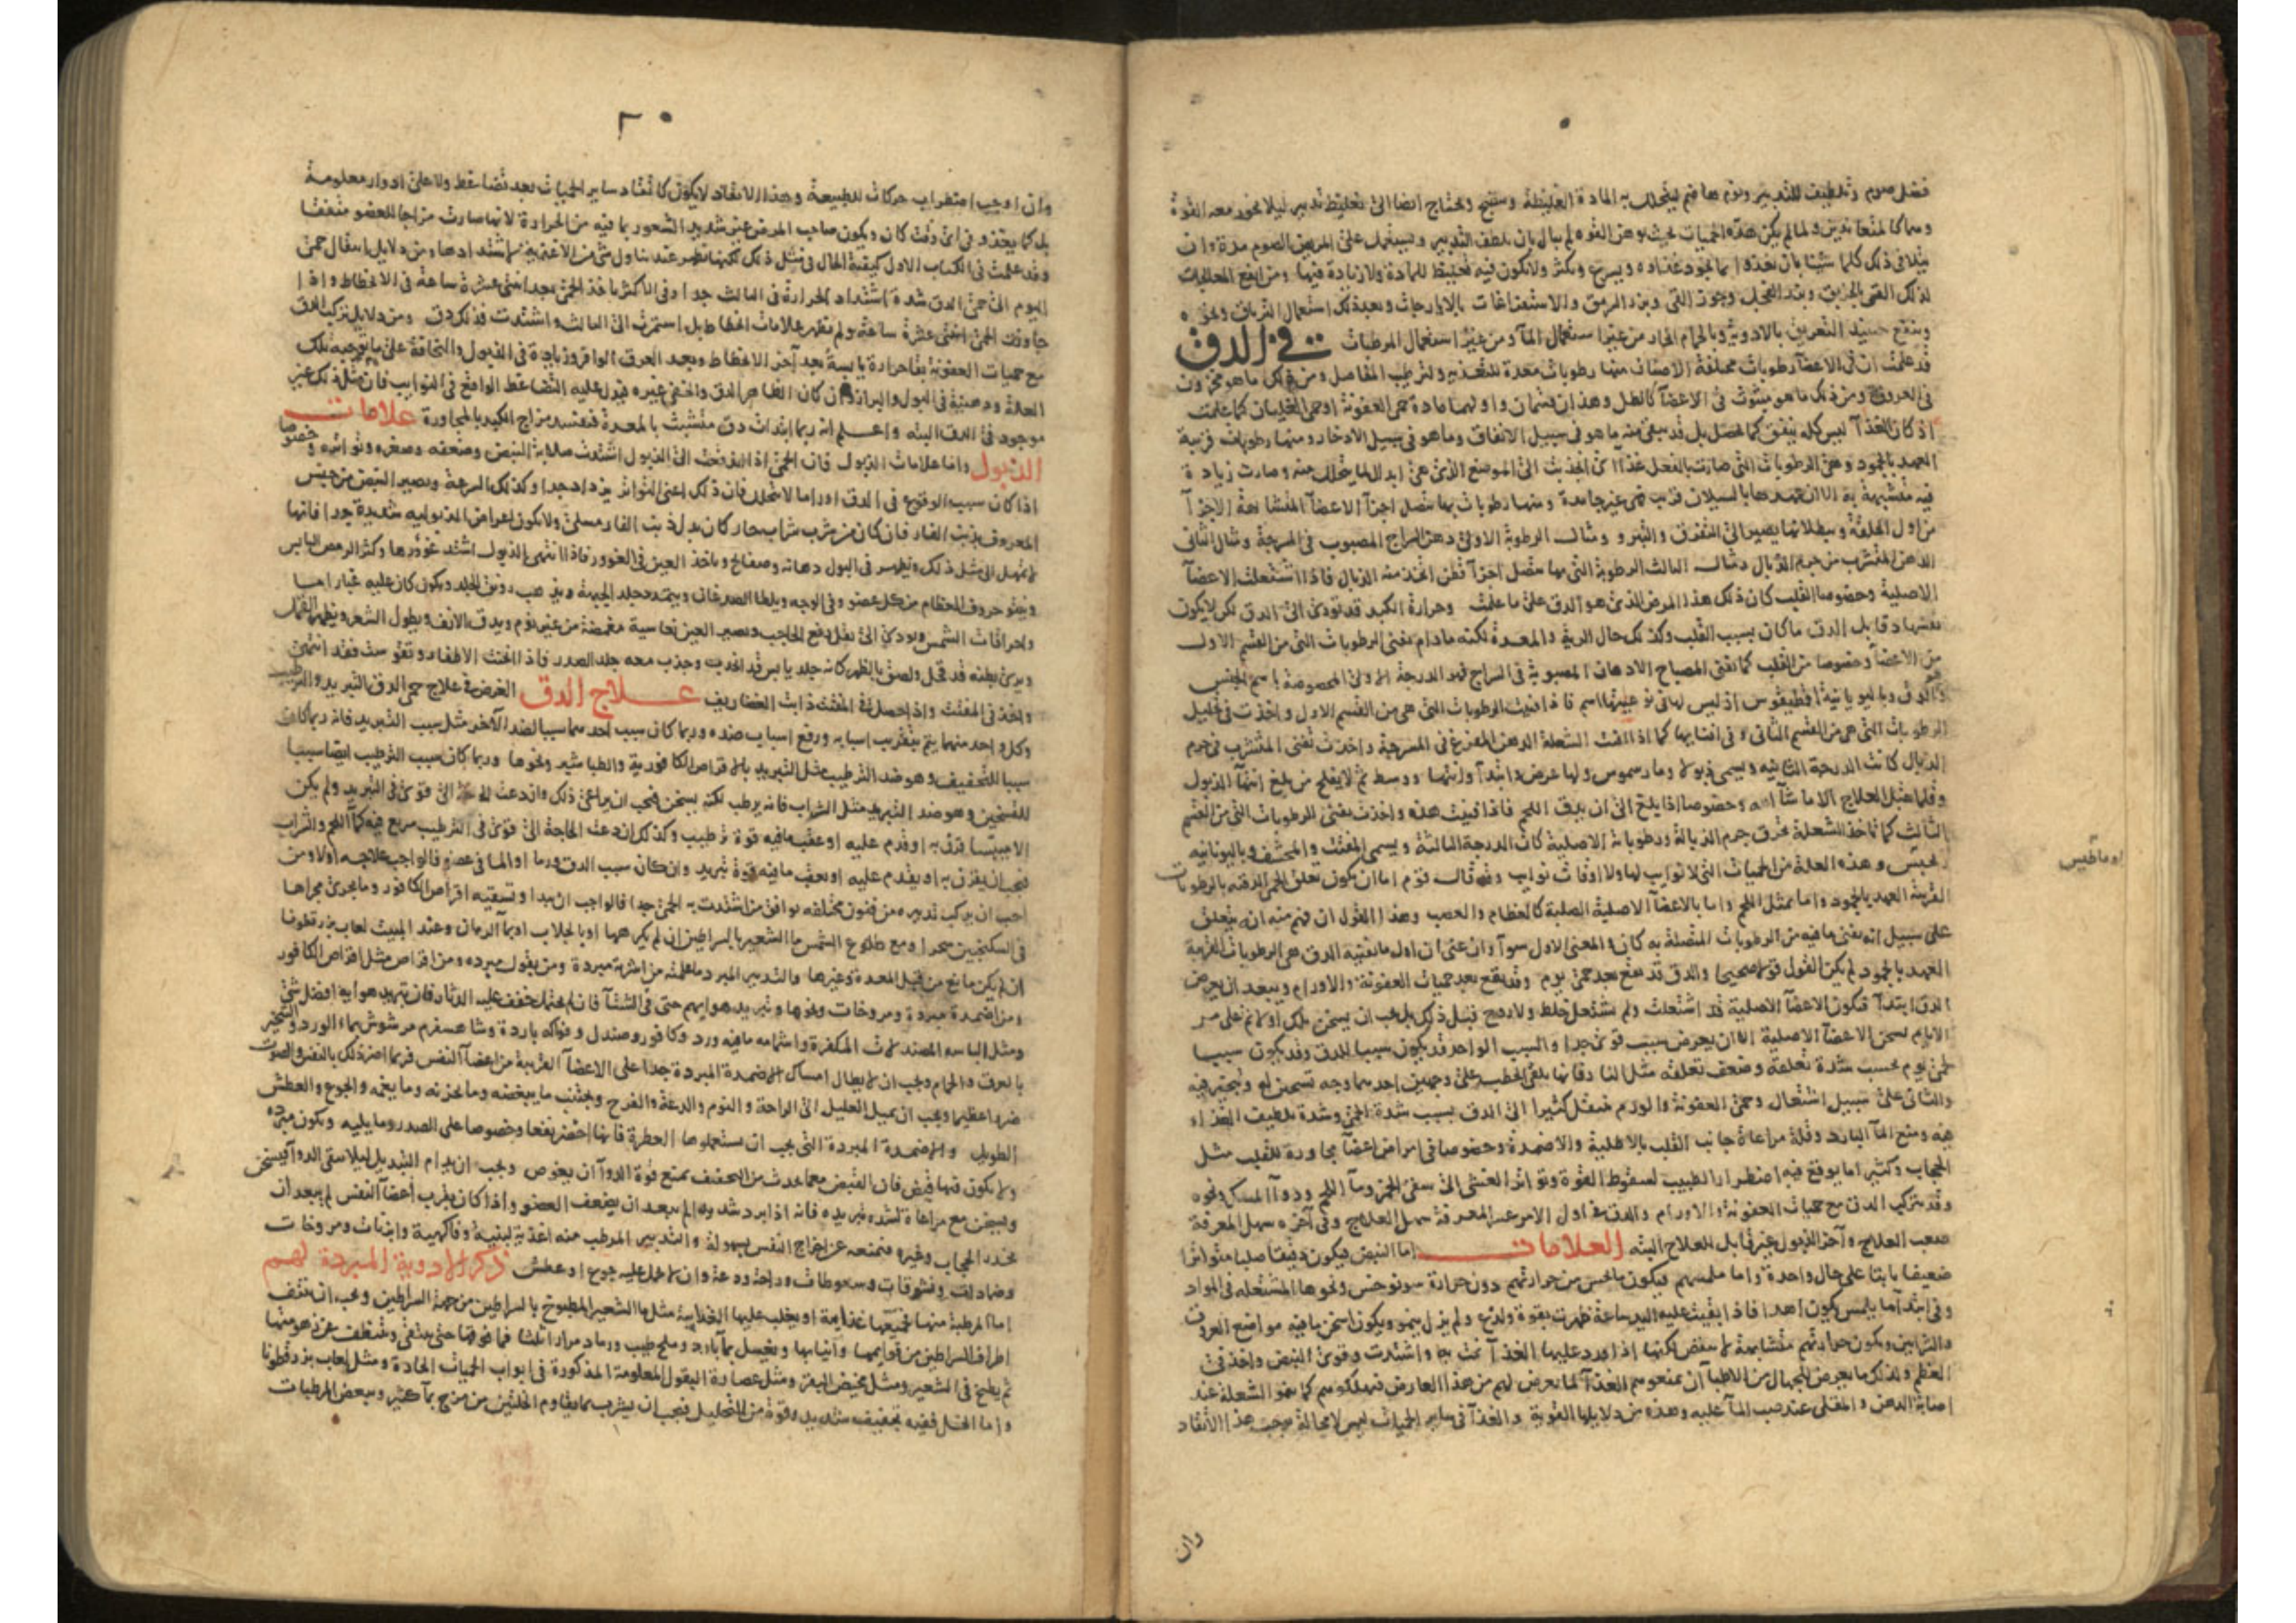 فضل صوم وتلطيف للتدبير ونوم هاضم ليتحلل به المادة الغليظة وينضج ويحتاج ايضا الى تغليظ تدبير ليلا تخور معه القوة
وهما كالمتعاندين ولما لم يكن هذه الحميات بحيث يوهن القوة لم يبال بان يلطف التدبير
لذلك القى وبزر الفجل وجوز القى والاستفراغات بالايارجات وبعد ذلك استعمال الترياق ونحوه
وينفع حينئذ التعريق بالادوية وبالحمام الحار من غير استعمال المآ ومن غير استعمال المرطبات في الدق
قد علمت ان في الاعضآ رطوبات مختلفة الاصناف منها رطوبات معدة للتغذية ولترطيب المفاصل ومن ذلك ما هو مخزون
في العروق ومن ذلك ما هو مبثوث في الاعضآ كالطل وهذان قسمان واولهما مادة حمى العفونة او حمى الغليان كما علمت
اذ كان الغذآ ليس كله ينفق كما يحصل بل قد يبقى منه ما هو في سبيل الانفاق وما هو في سبيل الادخار ومنها رطوبات قريبة
العهد بالجمود وهى الرطوبات التى صارت بالفعل غذا اى انجذبت الى الموضع الذى هى ابدال لما يتحلل منه وصارت زيادة
فيه متشبهة به الا ان عهدها بالسيلان قريب فهى غير جامدة ومنها رطوبات بها تتصل اجزآ الاعضآ المتشابهة الاجزآ
من اول الخلقة وببطلانها يصير الى التفرق والتبرؤ ومثال الرطوبة الاولى دهن السراج المصبوب في المسرجة ومثال الثانى
الدهن المتشرب من جرم الذبال ومثال الثالث الرطوبة التى بها تتصل اجزآ قطن اتخذ منه الذبال فاذا اشتعلت الاعضآ
الاصلية وخصوصا القلب كان ذلك هذا المرض الذى هو الدق على ما علمت وحرارة الكبد قد تؤدى الى الدق لكن لا يكون
نفسها دقا بل الدق ما كان بسبب القلب وكذلك حال الرية والمعدة لكنه ما دام يفنى الرطوبات التى من القسم الاول
من الاعضآ وخصوصا من القلب كما يفنى المصباح الادهان المصبوبة في السراج فهو الدرجة الاولى المخصوصة باسم الجنس
وهو الدق وباليونانية اقطيقوس اذ ليس لها في نوعيتها اسم فاذا فنيت الرطوبات التى هى من القسم الاول واخذت في تحليل
الرطوبات التى هى من القسم الثانى وفى افنايها كما اذا افنت الشعلة الدهن المفرغ في المسرجة واخذت تفنى المتشرب في جرم
الذبال كانت الدرجة الثانية ويسمى ذبولا ومارسموس ولها عرض وابتدآ وانتهآ ووسط ثم لا يفلح من بلغ انتهآ الذبول
وقلما يقبل العلاج الا ما شآ الله وخصوصا اذا بلغ الى ان يذوب اللحم فاذا فنيت هذه واخذت تفنى الرطوبات التى من القسم
الثالث كما تاخذ الشعلة تحرق جرم الذبالة ورطوباته الاصلية كان الدرجة الثالثة ويسمى المفتت والمحشف وباليونانية
وهذه العلة من الحميات التى لا نوايب لها ولا اوقات نوايب وقد قال قوم اما ان يكون تعلق الحمى الدقية بالرطوبات
القريبة العهد بالجمود واما بمثل اللحم واما بالاعضآ الاصلية الصلبة كالعظام والعصب وهذا القول ان فهم منه انه يتعلق
على سبيل انه يفنى ما فيه من الرطوبات المتصلة به كان والمعنى الاول سوآ وان عنى ان اول ما تفنيه الدق هى الرطوبات القريبة
العهد بالجمود لم يكن القول قولا صحيحا والدق قد يقع بعد حمى يوم وقد يقع بعد حميات العفونة والاورام ويبعد ان يعرض
الدق ابتدآ فيكون الاعضآ الاصلية قد اشتعلت ولم يشتعل خلط ولا روح قبل ذلك بل يجب ان يسخن تلك اولا ثم على مر
الايام يسخن الاعضآ الاصلية الا ان يعرض سبب قوى جدا والسبب الواحد قد يكون سببا للدق وقد يكون سببا
لحمى يوم بحسب شدة تعلقه وضعف تعلقه مثل النار فانها تلقى الحطب على وجهين احدهما وجه تسخين له وتبخير فيه
والثانى على سبيل اشتعال وحمى العفونة والورم ينتقل كثيرا الى الدق بسبب شدة الحمى وشدة تلطيف الغذاء
فيه ومنع المآ البارد وقلة مراعاة جانب القلب بالاطلية والاضمدة وخصوصا في امراض اعضآ مجاورة للقلب مثل
الحجاب وكثيرا ما يوقع فيه اضطرار الطبيب لسقوط القوة وتواتر الغشى الى سقى الخمر ومآ اللحم ودوآ المسك ونحوه
وقد يتركب الدق مع حميات العفونة والاورام والدق في اول الامر عسر المعرفة سهل العلاج وفى آخره سهل المعرفة
صعب العلاج وآخر الذبول غير قابل للعلاج البتة العلامات اما النبض فيكون دقيقا صلبا متواترا
ضعيفا ثابتا على حال واحدة واما ملمسهم فيكون ما يحس من حرارتهم دون حرارة سونوخس ونحوها المشتعلة في المواد
وفى ابتدآ ما يلمس يكون اهدا فاذا بقيت عليه اليد ساعة ظهرت بقوة ولذع ولم يزل ينمو ويكون اسخن ما فيه مواضع العروق
والشرايين ويكون حرارتهم متشابهة لا تنقص لكنها اذا ورد عليها الغذآ نمت به واشتدت وقوى النبض واخذ في
العظم ولذلك ما يعرض للجهال من الاطبآ ان يمنعوهم الغذآ لما يعرض لهم من هذا العارض فيهلكوهم كما ينمو الشعلة عند
اصابة الدهن والمقلى عند صب المآ عليه وهذه من دلايلها القوية والغذآ في ساير الحميات ليس لا محالة يوجب هذا الاتقاد
وان
٢٠
وان اوجب اضطراب حركات للطبيعة وهذا الاتقاد لا يكون كاتقاد ساير الحميات بعد تضاغط ولا على ادوار معلومة
بل كما يغتذى في اى وقت كان ويكون صاحب المرض غير شديد الشعور بما فيه من الحرارة لانها صارت مزاجا للعضو متفقا
وقد علمت في الكتاب الاول كيفية الحال في مثل ذلك لكنها تظهر عند تناول شى من الاغذية لاشتدادها ومن دلايل انتقال حمى
اليوم الى حمى الدق شدة اشتداد الحرارة في الثالث جدا وفى الاكثر ياخذ الحمى بعد اثنتى عشرة ساعة في الانحطاط واذا
جاوزت الحمى اثنتى عشرة ساعة ولم تظهر علامات انحطاط بل استمرت الى الثالث واشتدت فذلك دق ومن دلايل تركب الدق
مع حميات العفونة بقا حرارة يابسة بعد آخر الانحطاط وبعد العرق الوافر وزيادة في الذبول والنحافة على ما توجبه تلك
العلة ودهنية في البول والبراز وان كان الظاهر الدق والخفى غيره فيدل عليه التضاغط الواقع في النوايب فان مثل ذلك غير
موجود في الدق البتة واعلم انه ربما ابتدات دق متشبث بالمعدة فتفسد مزاج الكبد بالمجاورة علامات
الذبول واما علامات الذبول فان الحمى اذا اندفعت الى الذبول اشتدت صلابة النبض وضعفه وصغره وتواتره وخصوصا
اذا كان سبب الوقوع في الدق اوراما لا تتحلل فان ذلك اعنى التواتر يزداد جدا وكذلك السرعة ويصير النبض من جنس
المعروف بذنب الفار فان كان من شرب شراب حار كان بدل ذنب الفار مسلى ولا يكون اعراض الذبولية شديدة جدا فانها
لا تمهل الى مثل ذلك ويظهر في البول دهانة وصفايح وياخذ العين في الغوور فاذا انتهى الذبول اشتد غؤورها وكثر الرمص اليابس
وينتو حروف العظام من كل عضو وفى الوجه ويلطا الصدغان ويتمدد جلد الجبهة ويذهب رونق الجلد ويكون كان عليه غبارا ما
واحراقات الشمس ويودى الى ثقل رفع الحاجب ويصير العين نعاسية مغمضة من غير نوم ويدق الانف ويطول الشعر ويظهر القمل
ويرى بطنه قد قحل ولصق بالظهر كانه جلد يابس قد انجذب وجذب معه جلد الصدر فاذا انحنت الاظفار وتقوست فقد انتهى
واخذ في المفتت واذا حصل في المفتت ذابت الغضاريف علاج الدق الغرض في علاج حمى الدق التبريد والترطيب
وكل واحد منهما يتم بتقريب اسبابه ورفع اسباب ضده وربما كان سبب احدهما سببا لضد الآخر مثل سبب التبريد فانه ربما كان
سببا للتجفيف وهو ضد الترطيب مثل التبريد بالاقراص الكافورية والطباشير ونحوها وربما كان سبب الترطيب ايضا سببا
للتسخين وهو ضد التبريد مثل الشراب فانه يرطب لكنه يسخن فيجب ان يراعى ذلك وان دعت الحاجة الى قوى في التبريد ولم يكن
الا ميبسا قرن به او قدم عليه او عقبه ما فيه قوة ترطيب وكذلك ان دعت الحاجة الى قوى في الترطيب سريع فيه كمآ اللحم والشراب
فيجب ان يقرن به او يقدم عليه او يعقب ما فيه قوة تبريد وان كان سبب الدق ورما او الما في عضو فالواجب علاجه اولا ومن
احب ان يركب تدبيره من فنون مختلفة توافق من اشتدت به الحمى جدا فالواجب ان يبدا وتسقيه اقراص الكافور وما يجرى مجراها
في السكنجبين سحرا ومع طلوع الشمس مآ الشعير بالسراطين ان لم يكرهها او بالجلاب او بمآ الرمان وعند المبيت لعاب بزرقطونا
ان لم يكن مانع من قبل المعدة وغيرها والتدبير المبرد ما علمته من اشربة مبردة ومن بقول مبردة ومن اقراص مثل اقراص الكافور
ومن اضمدة مبردة ومروخات ونحوها وتبريد هوايهم حتى في الشتآ فان لم يحتمل خفف عليه الدثار فان تبريد هوايه افضل شى
ومثل الباسه المصندلات المكفرة واشمامه ما فيه ورد وكافور وصندل وفواكه باردة وشاهسفرم مرشوش بماء الورد والتسخير
ويجب ان لا يطال امساك الاضمدة المبردة جدا على الاعضآ القريبة من اعضآ النفس فربما اضر ذلك بالنفس والصوت
ضررا عظيما ويجب ان يميل العليل الى الراحة والنوم والدعة والفرح ويجتنب ما يبغضه وما يحزنه وما يغمه والجوع والعطش
الطويل والاضمدة المبردة التى يجب ان تستعملوها العطرة فانها احضر نفعا وخصوصا على الصدر وما يليه ويكون مبردة
ولا يكون فيها قبض فان القبض مما يحدث من التجفيف يمنع قوة الدوآ ان يغوص ويجب ان يدام التبديل ليلا يبقى الدوآ فيسخن
ويسخن مع مراعاة لشدة تبريده فانه اذا برد شديدا لم يبعد ان يضعف العضو واذا كان بقرب اعضآ النفس لم يبعد ان
يخدر الحجاب وغيره فيمنعه عن اخراج النفس بسهولة والتدبير المرطب منه اغذية لينية وفاكهية وابزنات ومروخات
وضمادات ونشوقات وسعوطات وراحة ودعة وان لا يحمل عليه جوع او عطش ذكر الادوية المبردة لهم
اما المرطبة منها فجميعها غذايية او يغلب عليها الغذايية مثل مآ الشعير المطبوخ بالسراطين من جهة السراطين ويجب ان تنتف
اطراف السراطين من قوايمها وانيابها ويغسل بمآ بارد وملح طيب ورماد مرارا ثلثا فما فوقها حتى ينقى وينظف عن زهومتها
ثم يطبخ في الشعير ومثل مخيض البقر ومثل عصارة البقول المعلومة المذكورة في ابواب الحميات الحادة ومثل لعاب بزرقطونا
واما الخل ففيه تجفيف شديد وقوة من التحليل فيجب ان يشرب بما يقاوم الخلتين من مزج بمآ كثير وببعض المرطبات